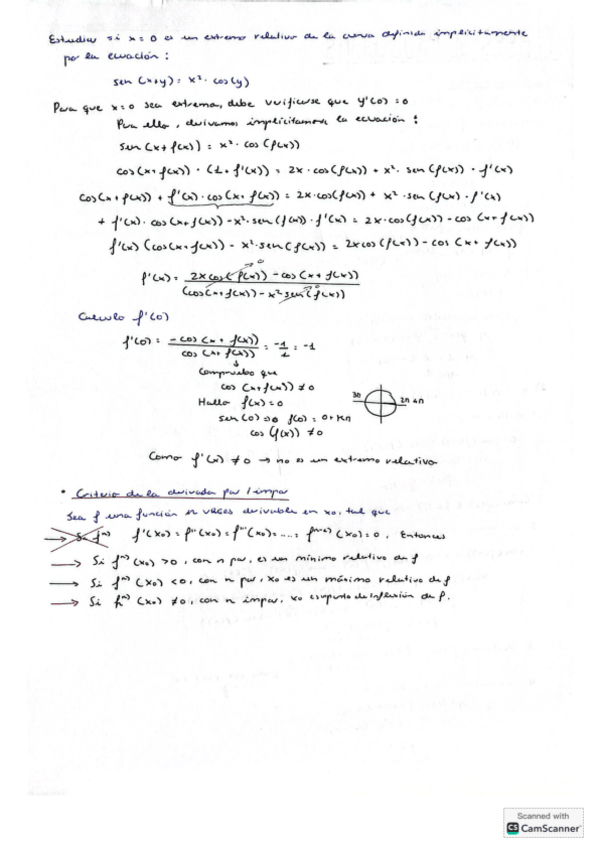 Estudiar si x = 0 es un extremo relativo de la curva definida implícitamente
por la ecuación :
sen (x+y) = x² · cos(y)
Para que x=0 sea extremo, debe verificarse que y'(0) = 0
Para ello, derivamos implícitamente la ecuación :
sen (x + f(x)) = x² · cos (f(x))
cos(x+ f(x)) · (1 + f'(x)) = 2x · cos(f(x)) + x² · sen (f(x)) · f'(x)
cos(x + f(x)) + f'(x) · cos(x+ f(x)) = 2x·cos(f(x)) + x² · sen (f(x)) · f'(x)
+ f'(x) · cos(x+ f(x)) - x²·sen (f(x)) · f'(x) = 2x·cos(f(x)) - cos (x+ f(x))
f'(x) (cos(x+ f(x)) - x²·sen(f(x)) = 2x cos (f(x)) - cos (x+ f(x))
f'(x) = 2x cos(f(x)) - cos(x + f(x)) / (cos(x+ f(x)) - x² sen(f(x))
0
Calculo f'(0)
f'(0) = - cos (x + f(x)) / cos (x+ f(x)) = -1/1 = -1
Compruebo que
cos (x+f(x)) ≠ 0
Hallo f(x) = 0
sen(0) → 0 f(0) = 0 + Kπ
cos (f(x)) ≠ 0
3π 2π 4π
Como f'(x) ≠ 0 → no es un extremo relativo
• Criterio de la derivada par / impar
Sea f una función n veces derivable en x₀, tal que
→ Si f⁽ⁿ⁾ f'(x₀) = f''(x₀) = f'''(x₀) = .... = f⁽ⁿ⁻¹⁾(x₀) = 0, Entonces
→ Si f⁽ⁿ⁾(x₀) > 0, con n par, es un mínimo relativo de f
→ Si f⁽ⁿ⁾(x₀) < 0, con n par, x₀ es un máximo relativo de f
→ Si f⁽ⁿ⁾(x₀) ≠ 0, con n impar, x₀ es punto de inflexión de f.
Scanned with
CS CamScanner